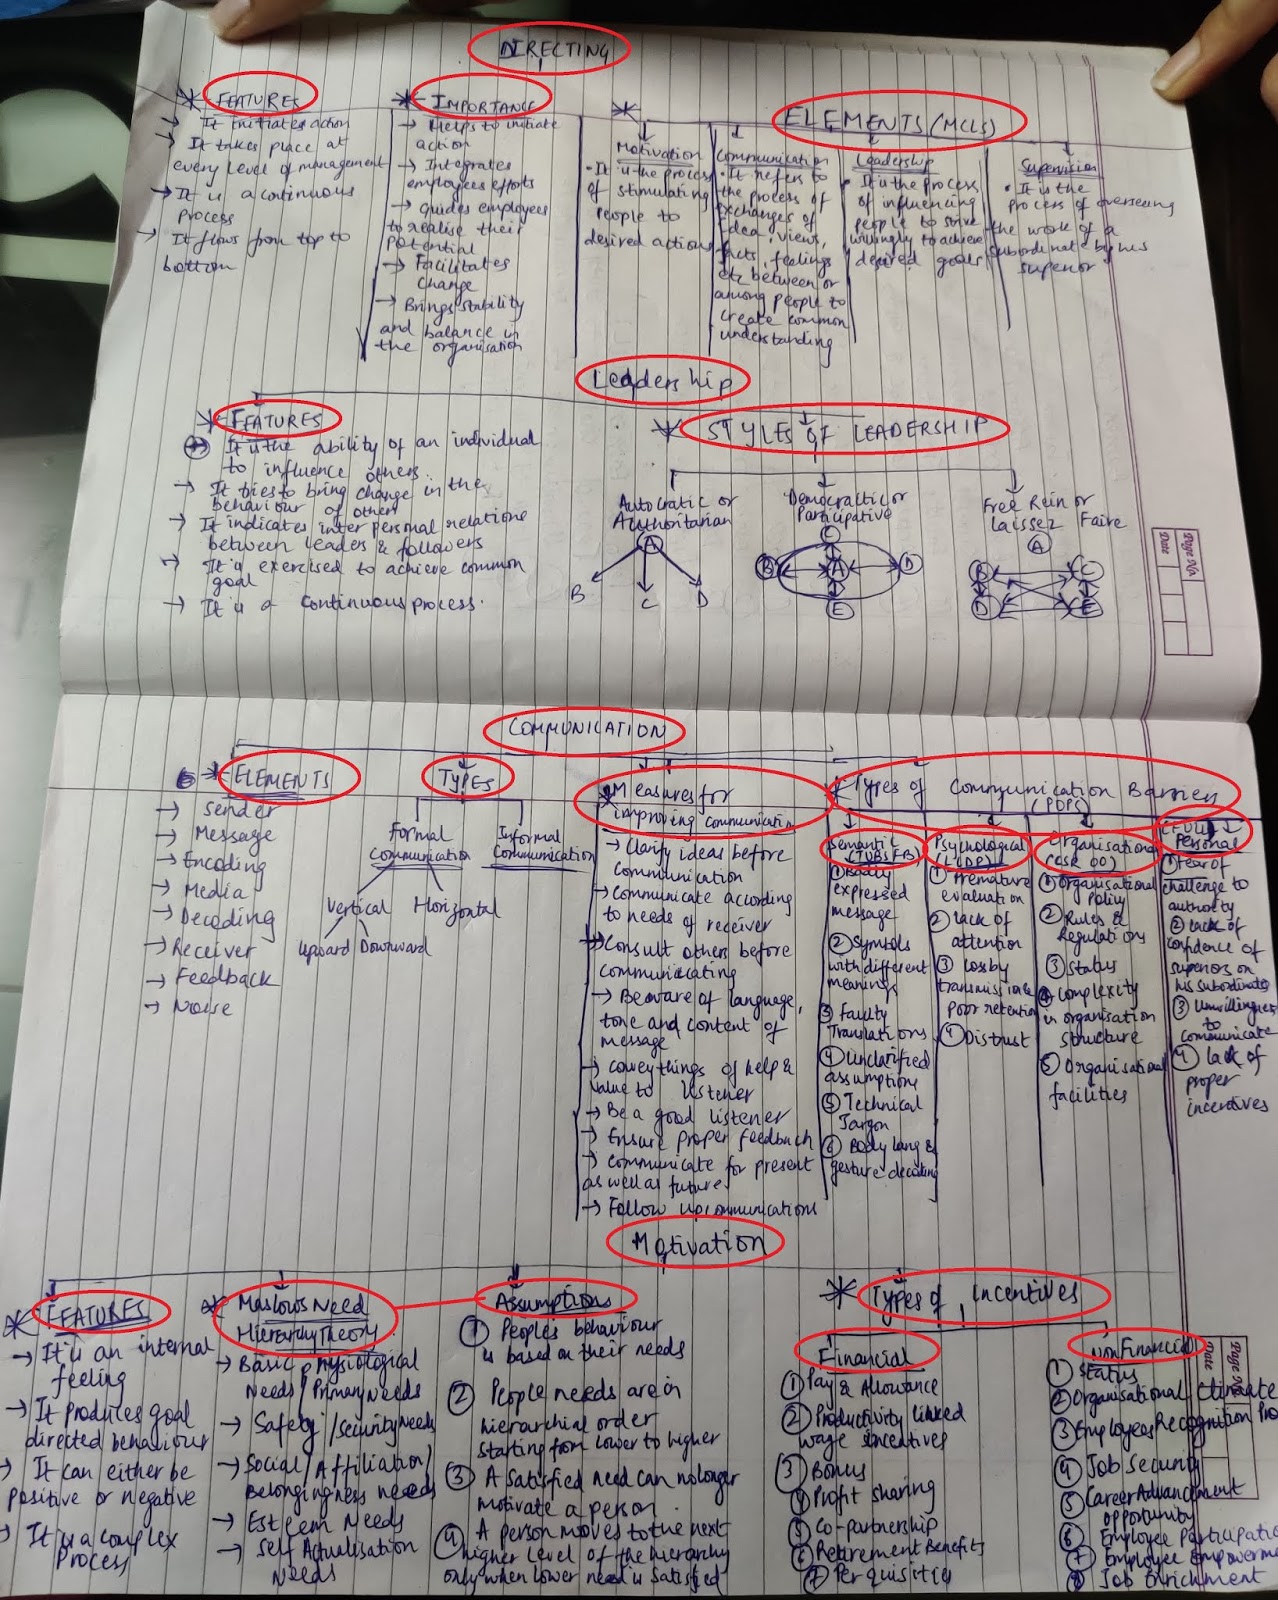 DIRECTING
* FEATURES
→ It initiates action
→ It takes place at
every level of management
→ It is a continuous
process
→ It flows from top to
bottom
* IMPORTANCE
→ Helps to initiate
action
→ Integrates
employees efforts
→ guides employees
to realise their
potential
→ Facilitates
change
→ Brings stability
and balance in
the organisation
* ELEMENTS (MCLS)
Motivation
• It is the process
of stimulating
people to
desired actions
Communication
• It refers to
the process of
exchanges of
idea, views,
facts, feelings
etc between or
among people to
create common
understanding
Leadership
• It is the process
of influencing
people to strive
willingly to achieve
desired goals
Supervision
• It is the
process of overseeing
the work of a
subordinate by his
superior
Leadership
* FEATURES
→ It is the ability of an individual
to influence others
→ It tries to bring change in the
behaviour of others
→ It indicates inter personal relations
between leaders & followers
→ It is exercised to achieve common
goal
→ It is a continuous process.
* STYLES OF LEADERSHIP
Autocratic or
Authoritarian
A
B
C
D
Democractic or
Participative
C
B
A
D
E
Free Rein or
Laissez Faire
A
B
C
D
E
Page No.
Date
COMMUNICATION
* ELEMENTS
→ Sender
→ Message
→ Encoding
→ Media
→ Decoding
→ Receiver
→ Feedback
→ Noise
TYPES
Formal
Communication
Informal
Communication
Vertical
Horizontal
Upward
Downward
* Measures for
improving communication
→ Clarify ideas before
communication
→ Communicate according
to needs of receiver
→ Consult others before
communicating
→ Be aware of language,
tone and content of
message
→ Convey things of help &
value to listener
→ Be a good listener
→ Ensure proper feedback
→ communicate for present
as well as future
→ Follow up communications
* Types of Communication Barriers
(POPS)
Semantic
(TUBSFB)
① Badly
expressed
message
② Symbols
with different
meanings
③ Faulty
Translations
④ Unclarified
assumptions
⑤ Technical
Jargon
⑥ Body lang &
gesture decoding
Psychological
(LLDP)
① Premature
evaluation
② Lack of
attention
③ Loss by
transmission &
poor retention
④ Distrust
Organisational
① Organisational
Policy
② Rules &
Regulations
③ Status
④ Complexity
in organisation
structure
⑤ Organisational
facilities
(FULL)
Personal
① Fear of
challenge to
authority
② Lack of
confidence of
superiors on
his subordinates
③ Unwillingness
to
communicate
④ lack of
proper
incentives
Motivation
* FEATURES
→ It is an internal
feeling
→ It produces goal
directed behaviour
→ It can either be
positive or negative
→ It is a complex
Process
* Maslows Need
Hierarchy Theory
→ Basic Physiological
Needs/Primary Needs
→ Safety/Security Needs
→ Social/Affiliation/
Belongingness needs
→ Esteem Needs
→ Self Actualisation
Needs
Assumptions
① People's behaviour
is based on their needs
② People needs are in
hierarchial order
starting from lower to higher
③ A Satisfied need can no longer
motivate a person.
④ A person moves to the next
higher level of the hierarchy
only when lower need is satisfied
* Types of Incentives
Financial
① Pay & Allowance
② Productivity linked
wage incentives
③ Bonus
④ Profit sharing
⑤ Co-partnership
⑥ Retirement Benefits
⑦ Perquisites
Non Financial
① Status
② Organisational Climate
③ Employees Recognition Pro
④ Job Security
⑤ Career Advancement
opportunity
⑥ Employee Participatio
⑦ Employee Empowerme
⑧ Job Enrichment
Page No.
Date